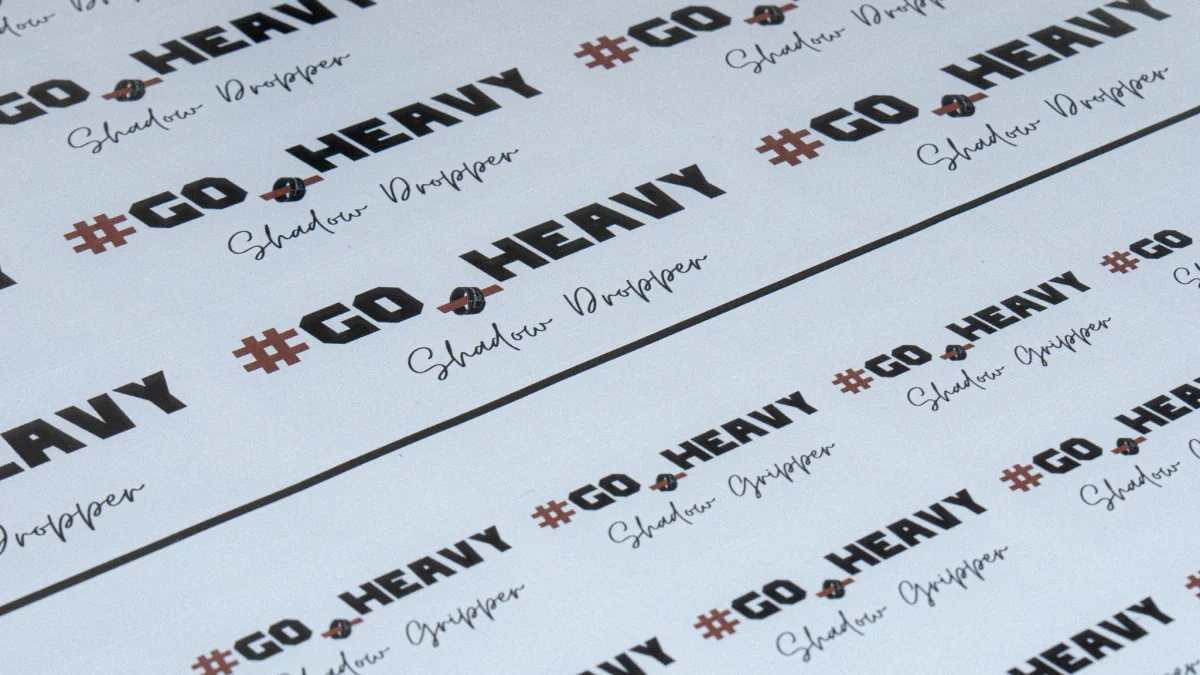 GO HEAVY
Shadow Dropper
#GO
Shadow Dropper
#GO HEAVY
Shadow Dropper
#GO HEAVY
Shadow Dropper
#GO HEAVY
Shadow Dropper
HEAVY
Dropper
#GO
#GO HEAVY
Shadow Gripper
#GO HEAVY
Shadow Gripper
#GO HEAVY
Shadow Gripper
#GO HEA
Shadow G
#GO HEAVY
Shadow Gripper
HEAVY